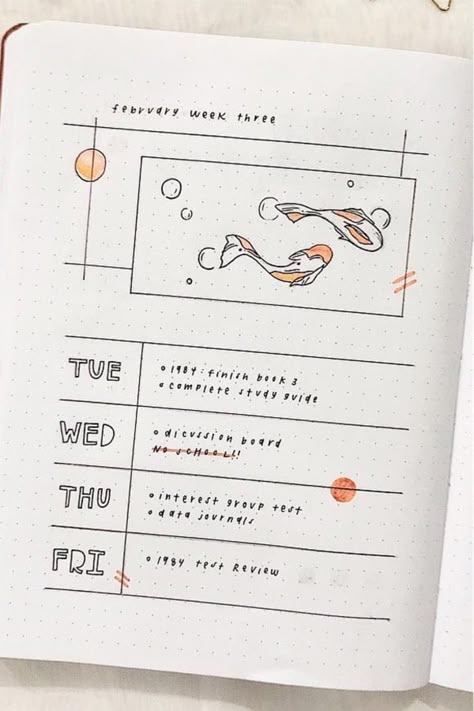 february week three
TUE
o 1984: finish book 3
o complete study guide
WED
o dicussion board
NO SCHOOL!!
THU
o interest group test
o data journals
FRI
o 1984 test Review